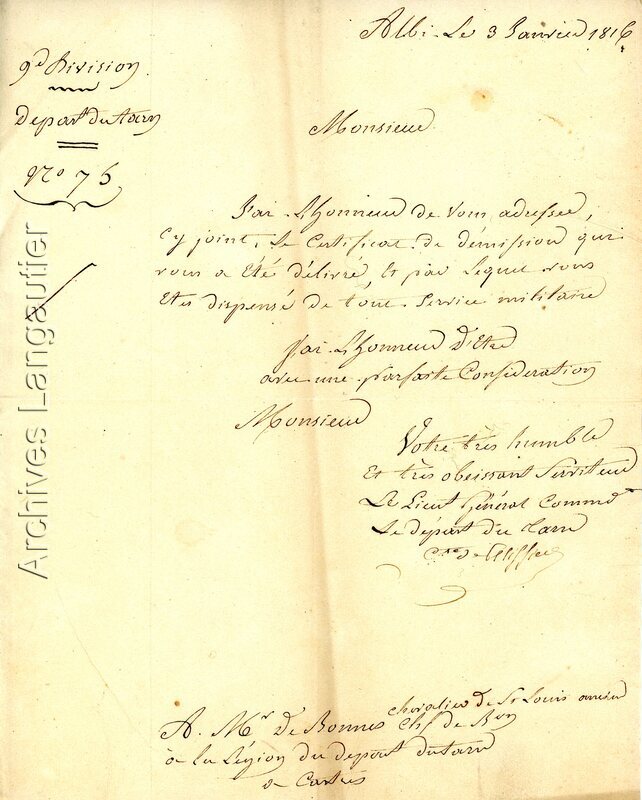 Albi Le 3 Janvier 1816
9e Division
Depart du tarn
No 75
Monsieur
J'ai L'honneur de vous adresser,
Cy joint, Le Certificat de démission qui
vous a été délivré, et par Lequel vous
Etes dispensé de tout Service militaire
J'ai L'honneur D'Etre
avec une parfaite Consideration
Monsieur
Votre très humble
Et très obeissant Serviteur
Le Lieut Général Commdt
Le départ du Tarn
A Mr de Bonnes chevalier de St Louis ancien
Chf de Bon
à la Légion du depart du tarn
a Castres
Archives Langautier